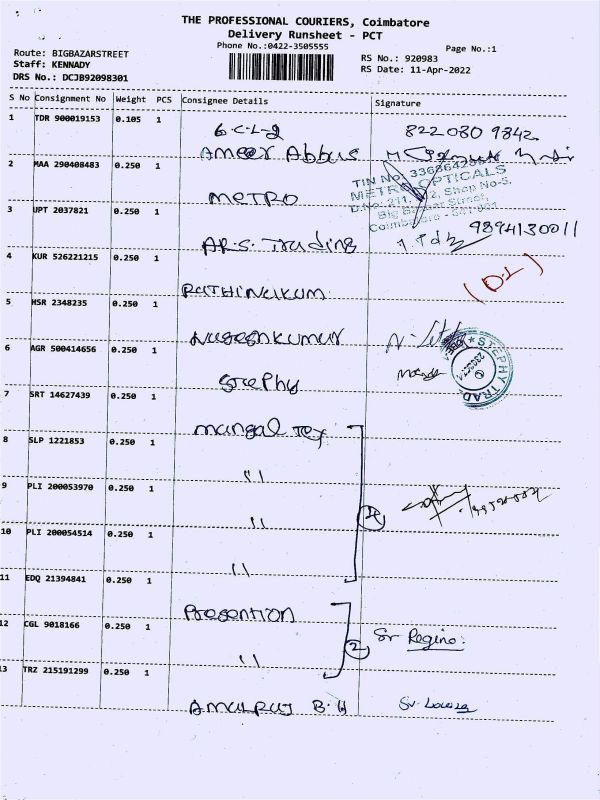 THE PROFESSIONAL COURIERS, Coimbatore
Delivery Runsheet - PCT
Phone No.:0422-3505555
Page No.:1
Route: BIGBAZARSTREET
Staff: KENNADY
DRS No.: DCJB92098301
RS No.: 920983
RS Date: 11-Apr-2022
S No Consignment No Weight PCS Consignee Details Signature
1 TDR 900019153 0.105 1
6-C-L-2
Ameer Abbus
822 080 9842
2 MAA 290408483 0.250 1
METRO
TIN No
METRO OPTICALS
Shop No-5,
Big Bazaar Street,
3 UPT 2037821 0.250 1
AR.S. Trading
9894130011
4 KUR 526221215 0.250 1
RATHINUKUM
(D-L)
5 HSR 2348235 0.250 1
NUGESHKUMUR
6 AGR 500414656 0.250 1
Stephy
STEPHY TRAD
7 SRT 14627439 0.250 1
Mungal Tex
8 SLP 1221853 0.250 1
"
9 PLI 200053970 0.250 1
"
10 PLI 200054514 0.250 1
"
11 EDQ 21394841 0.250 1
Presention
12 CGL 9018166 0.250 1
"
2
Sr Regino:
13 TRZ 215191299 0.250 1
AMULRUJ B.H
Sr. Louisa